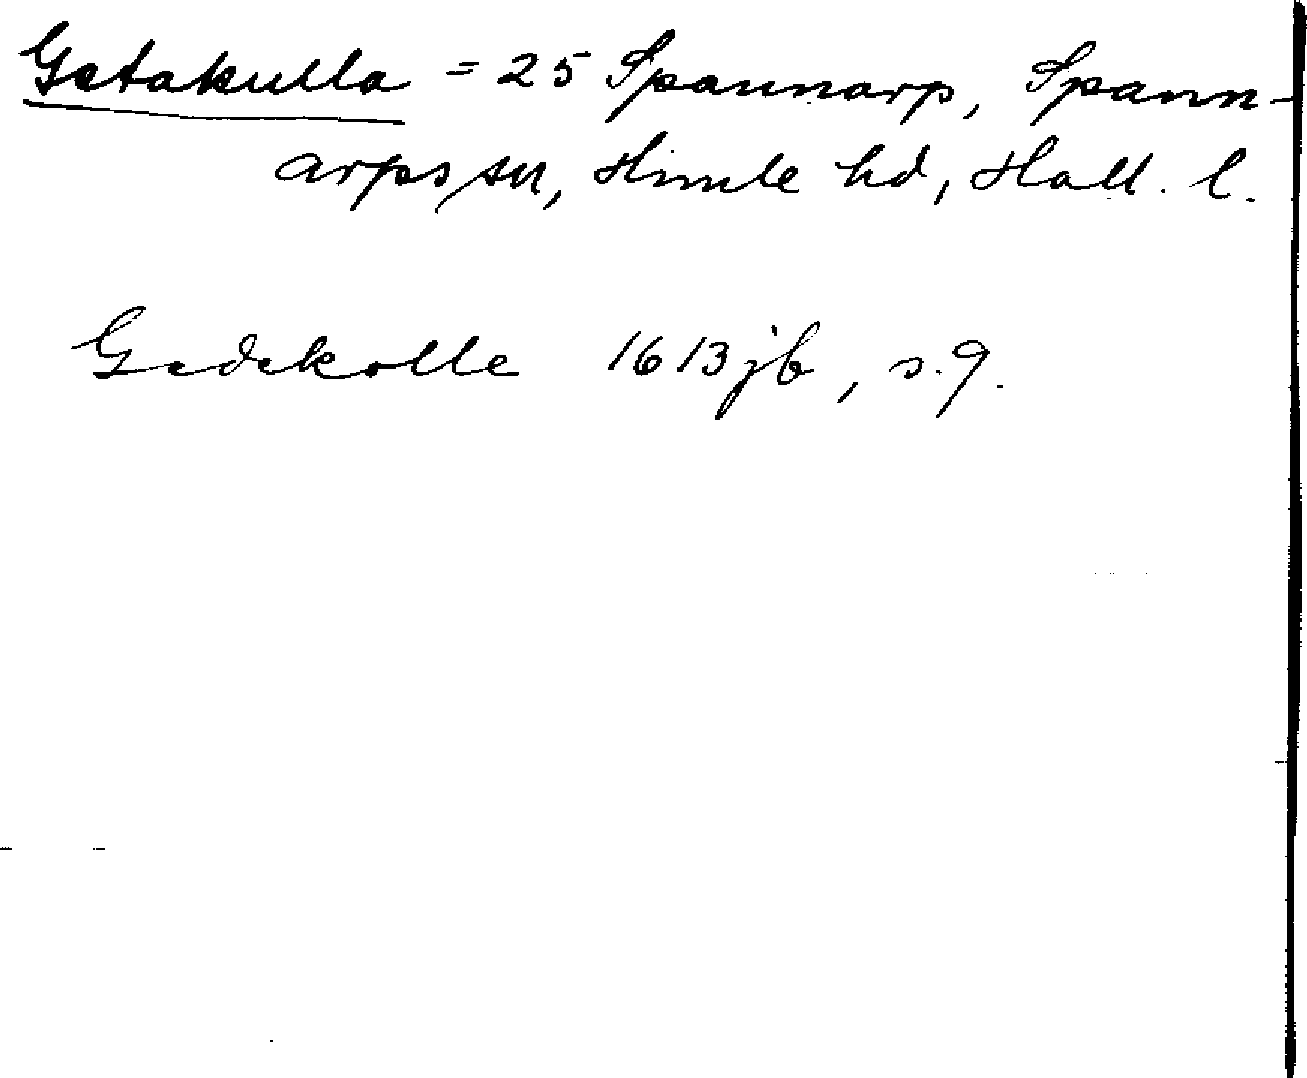 Getakulla = 25 Spannarp, Spann-
arps sn, Himle hd, Hall. l.
Gedekolle 1613 jb, s. 9.